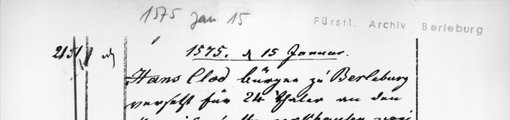 1575 Jan. 15
Fürstl. Archiv Berleburg
1575. d 15 Januar.
Hans Clod bürger zu Berleburg
versetzt für 24 thaler an den